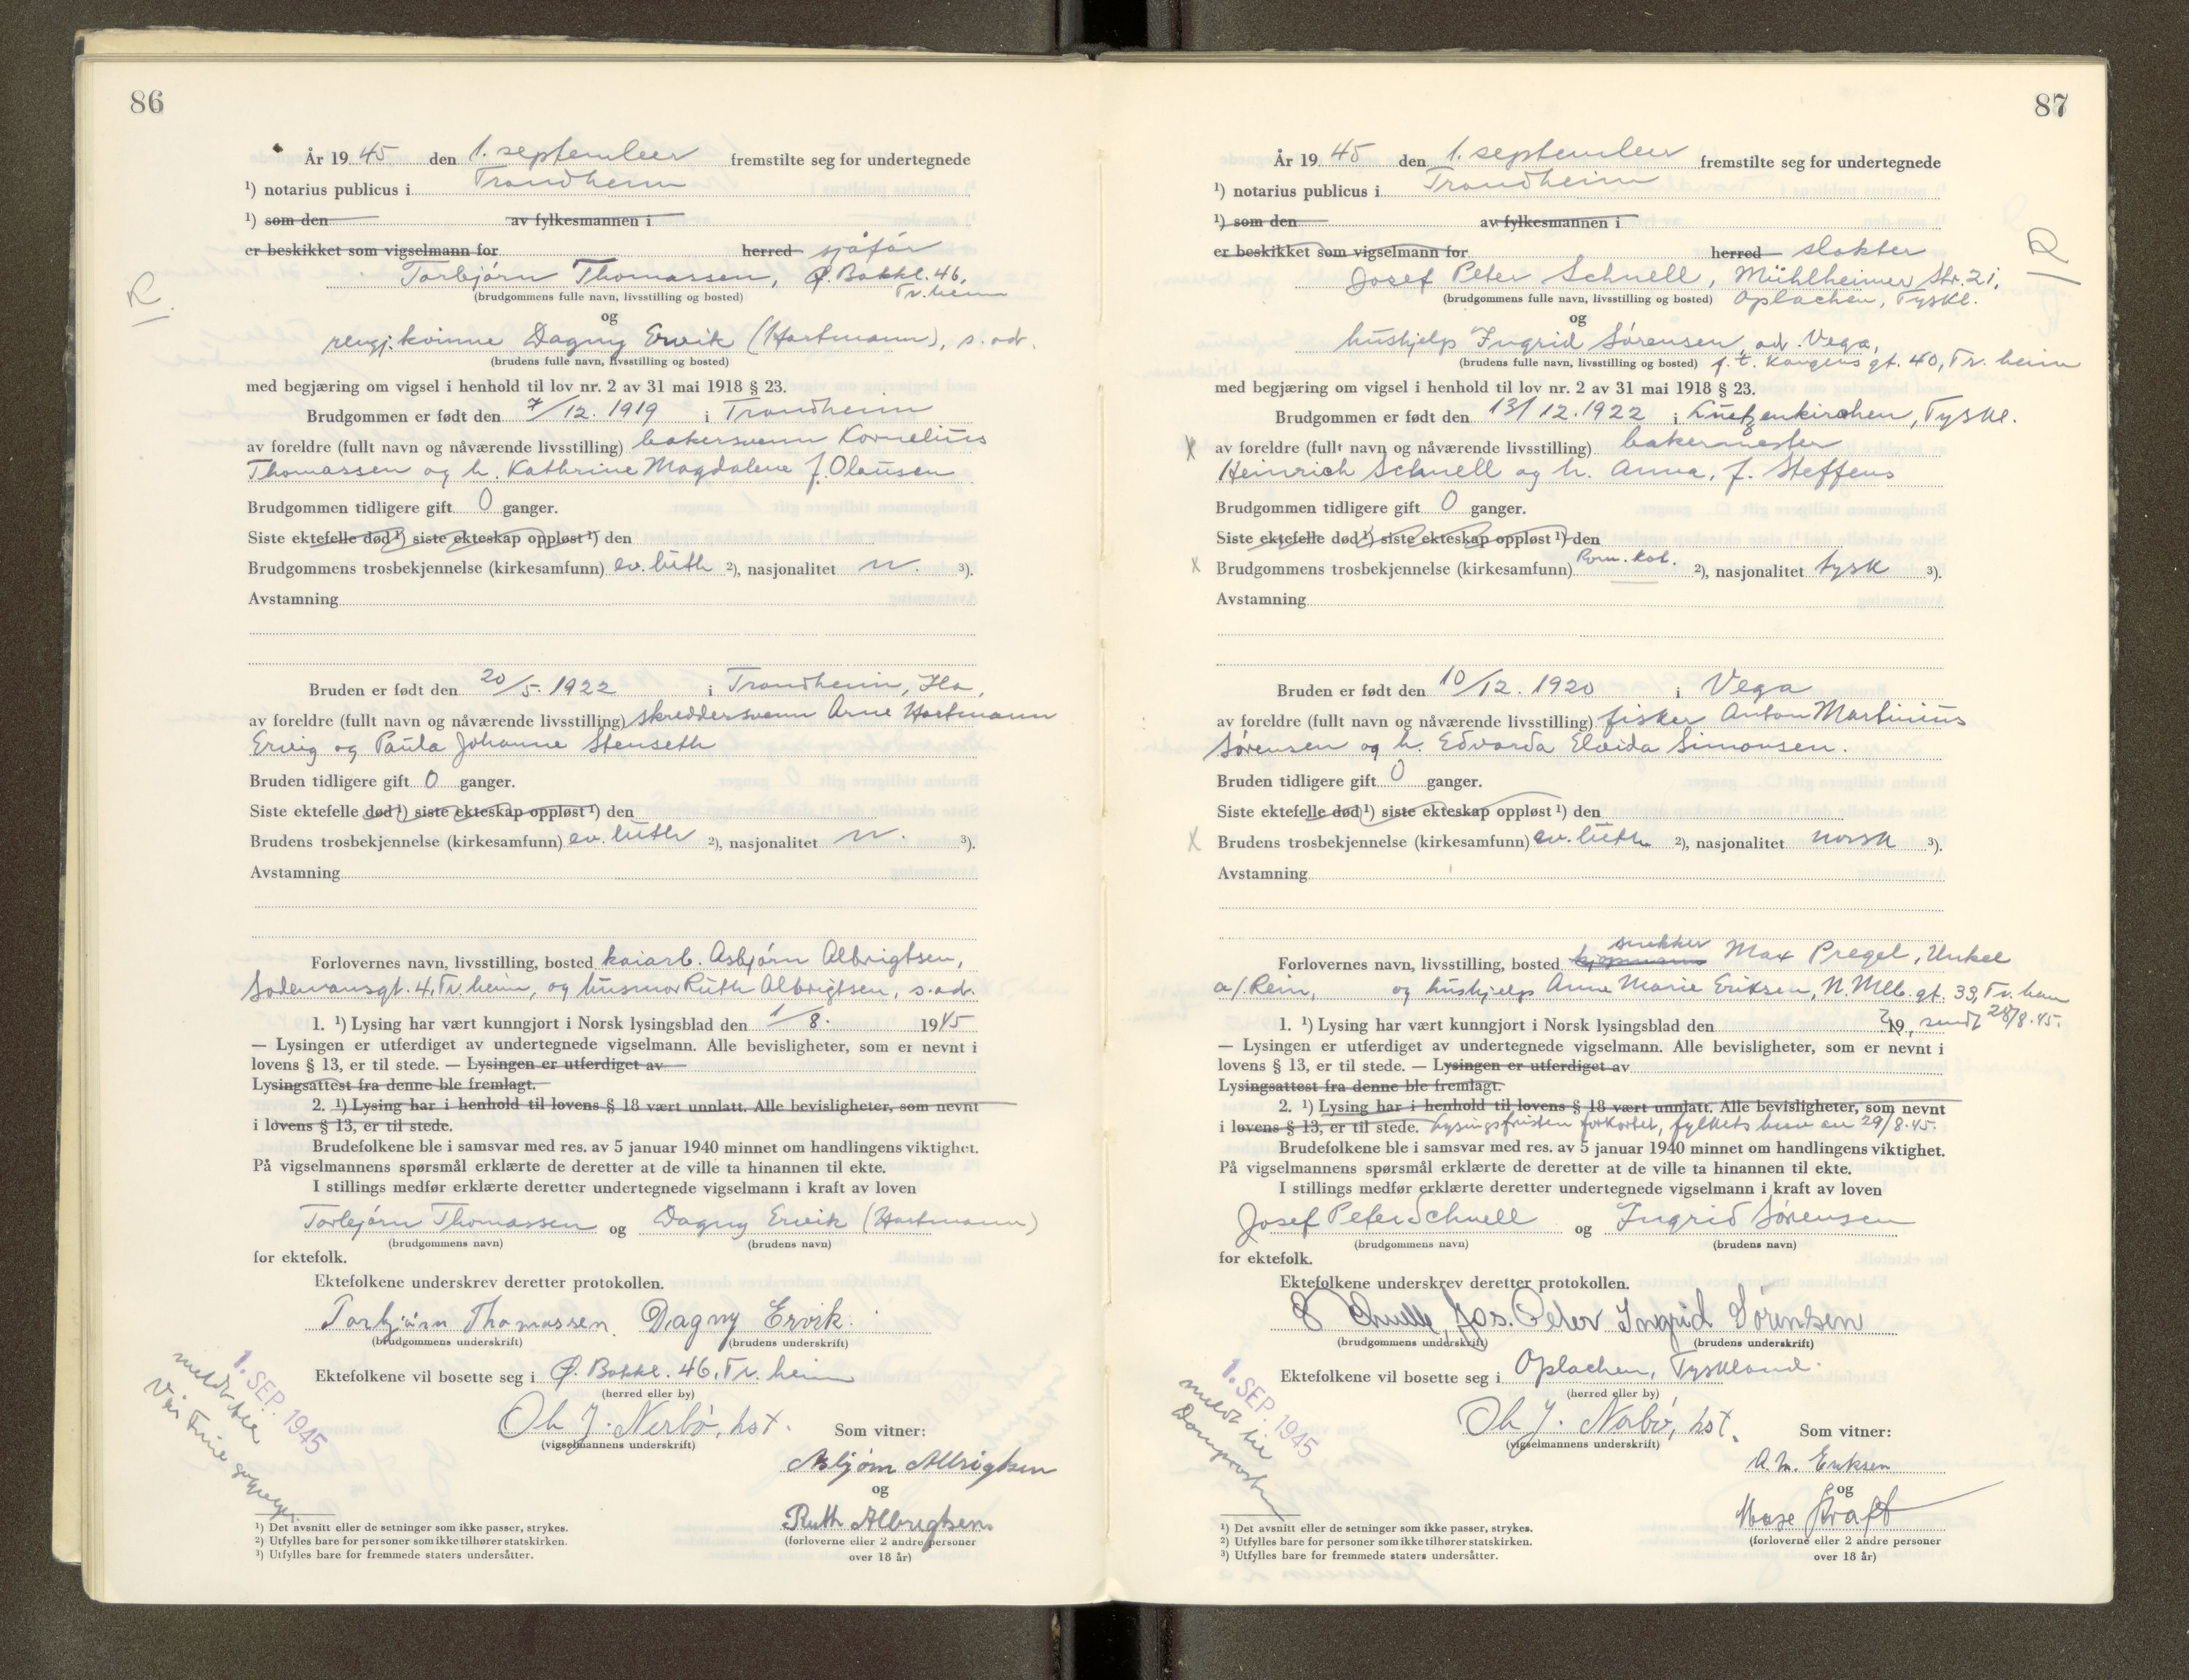 86
År 19 45 den 1. september fremstilte seg for undertegnede
¹) notarius publicus i Trondheim
¹) som den av fylkesmannen i
er beskikket som vigselmann for herred sjåfør
Torbjørn Thomassen, Ø. Bakkl. 46,
(brudgommens fulle navn, livsstilling og bosted) Tr.heim
og
rengj. kvinne Dagny Ervik (Hartmann), s. ad.
(brudens fulle navn, livsstilling og bosted)
med begjæring om vigsel i henhold til lov nr. 2 av 31 mai 1918 § 23.
Brudgommen er født den 7/12. 1919 i Trondheim
av foreldre (fullt navn og nåværende livsstilling) bakersvenn Kornelius
Thomassen og h. Kathrine Magdalene f. Olaussen
Brudgommen tidligere gift 0 ganger.
Siste ektefelle død ¹) siste ekteskap oppløst ¹) den
Brudgommens trosbekjennelse (kirkesamfunn) ev. luth ²), nasjonalitet n. ³).
Avstamning
Bruden er født den 20/5. 1922 i Trondheim, Ila,
av foreldre (fullt navn og nåværende livsstilling) skreddersvenn Arne Hartmann
Ervig og Paula Johanne Stenseth
Bruden tidligere gift 0 ganger.
Siste ektefelle død ¹) siste ekteskap oppløst ¹) den
Brudens trosbekjennelse (kirkesamfunn) ev. luth ²), nasjonalitet n. ³).
Avstamning
Forlovernes navn, livsstilling, bosted kaiarb. Asbjørn Albrigtsen,
Sodemansgt. 4, Tr.heim, og husmor Ruth Albrigtsen, s. ad.
1. ¹) Lysing har vært kunngjort i Norsk lysingsblad den 1/8. 1945
— Lysingen er utferdiget av undertegnede vigselmann. Alle bevisligheter, som er nevnt i
lovens § 13, er til stede. — Lysingen er utferdiget av
Lysingsattest fra denne ble fremlagt.
2. ¹) Lysing har i henhold til lovens § 18 vært unnlatt. Alle bevisligheter, som nevnt
i lovens § 13, er til stede.
Brudefolkene ble i samsvar med res. av 5 januar 1940 minnet om handlingens viktighet.
På vigselmannens spørsmål erklærte de deretter at de ville ta hinannen til ekte.
I stillings medfør erklærte deretter undertegnede vigselmann i kraft av loven
Torbjørn Thomassen og Dagny Ervik (Hartmann)
(brudgommens navn) (brudens navn)
for ektefolk.
Ektefolkene underskrev deretter protokollen.
Torbjørn Thomassen. Dagny Ervik.
(brudgommens underskrift) (brudens underskrift)
Ektefolkene vil bosette seg i Ø. Bakkl. 46, Tr. heim
(herred eller by)
Ole J. Nerbø, hst. Som vitner:
(vigselmannens underskrift)
Asbjørn Albrigtsen
og
Ruth Albrigtsen
(forloverne eller 2 andre personer
over 18 år)
1. SEP. 1945
meldt til
Vår Frue
¹) Det avsnitt eller de setninger som ikke passer, strykes.
²) Utfylles bare for personer som ikke tilhører statskirken.
³) Utfylles bare for fremmede staters undersåtter.
87
År 19 45 den 1. september fremstilte seg for undertegnede
¹) notarius publicus i Trondheim
¹) som den av fylkesmannen i
er beskikket som vigselmann for herred slakter
Josef Peter Schnell, Mühlheimer Str. 21,
(brudgommens fulle navn, livsstilling og bosted) Oplachen, Tyskl.
og
hushjelp Ingrid Sørensen, ad. Vega,
(brudens fulle navn, livsstilling og bosted) f. t. Kongens gt. 40, Tr. heim
med begjæring om vigsel i henhold til lov nr. 2 av 31 mai 1918 § 23.
Brudgommen er født den 13/12. 1922 i Luetzenkirchen, Tyskl.
av foreldre (fullt navn og nåværende livsstilling) bakermester
Heinrich Schnell og h. Anna, f. Steffens
Brudgommen tidligere gift 0 ganger.
Siste ektefelle død ¹) siste ekteskap oppløst ¹) den
Brudgommens trosbekjennelse (kirkesamfunn) Rom. kat. ²), nasjonalitet tysk ³).
Avstamning
Bruden er født den 10/12. 1920 i Vega
av foreldre (fullt navn og nåværende livsstilling) fisker Anton Martinius
Sørensen og h. Edvarda Elvida Simonsen.
Bruden tidligere gift 0 ganger.
Siste ektefelle død ¹) siste ekteskap oppløst ¹) den
Brudens trosbekjennelse (kirkesamfunn) ev. luth. ²), nasjonalitet norsk ³).
Avstamning
snekker
Forlovernes navn, livsstilling, bosted Max Pregel, Unkel
a/Rein, og hushjelp Anne Marie Eriksen, N. Mlb. gt. 33, Tr. heim
1. ¹) Lysing har vært kunngjort i Norsk lysingsblad den ? 19 , sendt 28/8. 45.
— Lysingen er utferdiget av undertegnede vigselmann. Alle bevisligheter, som er nevnt i
lovens § 13, er til stede. — Lysingen er utferdiget av
Lysingsattest fra denne ble fremlagt.
2. ¹) Lysing har i henhold til lovens § 18 vært unnlatt. Alle bevisligheter, som nevnt
i lovens § 13, er til stede. Lysingsfristen forkortet, fylkets 29/8. 45.
Brudefolkene ble i samsvar med res. av 5 januar 1940 minnet om handlingens viktighet.
På vigselmannens spørsmål erklærte de deretter at de ville ta hinannen til ekte.
I stillings medfør erklærte deretter undertegnede vigselmann i kraft av loven
Josef Peter Schnell og Ingrid Sørensen
(brudgommens navn) (brudens navn)
for ektefolk.
Ektefolkene underskrev deretter protokollen.
Schnelle, Jos. Peter Ingrid Sørensen
(brudgommens underskrift) (brudens underskrift)
Ektefolkene vil bosette seg i Oplachen, Tyskland.
(herred eller by)
Ole J. Nerbø, hst. Som vitner:
(vigselmannens underskrift)
A. M. Eriksen
og
Kraft
(forloverne eller 2 andre personer
over 18 år)
1. SEP. 1945
meldt til
Domprosten
¹) Det avsnitt eller de setninger som ikke passer, strykes.
²) Utfylles bare for personer som ikke tilhører statskirken.
³) Utfylles bare for fremmede staters undersåtter.